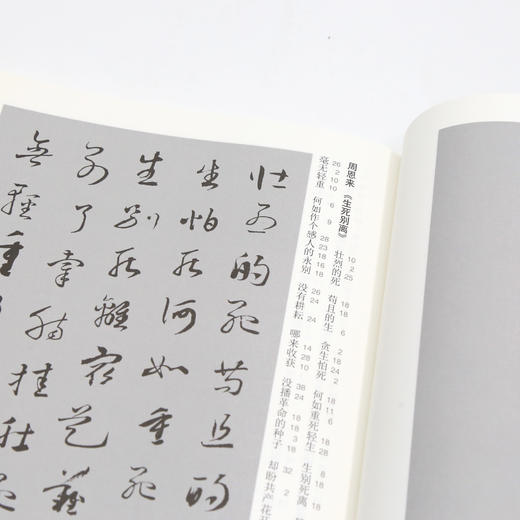 周恩来 《生死别离》
10 2 25 18 18 6 2 18 24 2 18 11 6 18 28 8 18
壮烈的死 苟且的生 贪生怕死 何如重死轻生 生别死离
26 2 10 10 6 9 28 23 18 16 18 26 24 24 14 28 10 38 24 18 18 3 18 32 2
毫无轻重 何如作个感人的永别 没有耕耘 哪来收获 没播革命的种子 却盼共产花
壮烈的死苟且的
生怕死何如重死
生别死離最
了牵腸挂
輕重